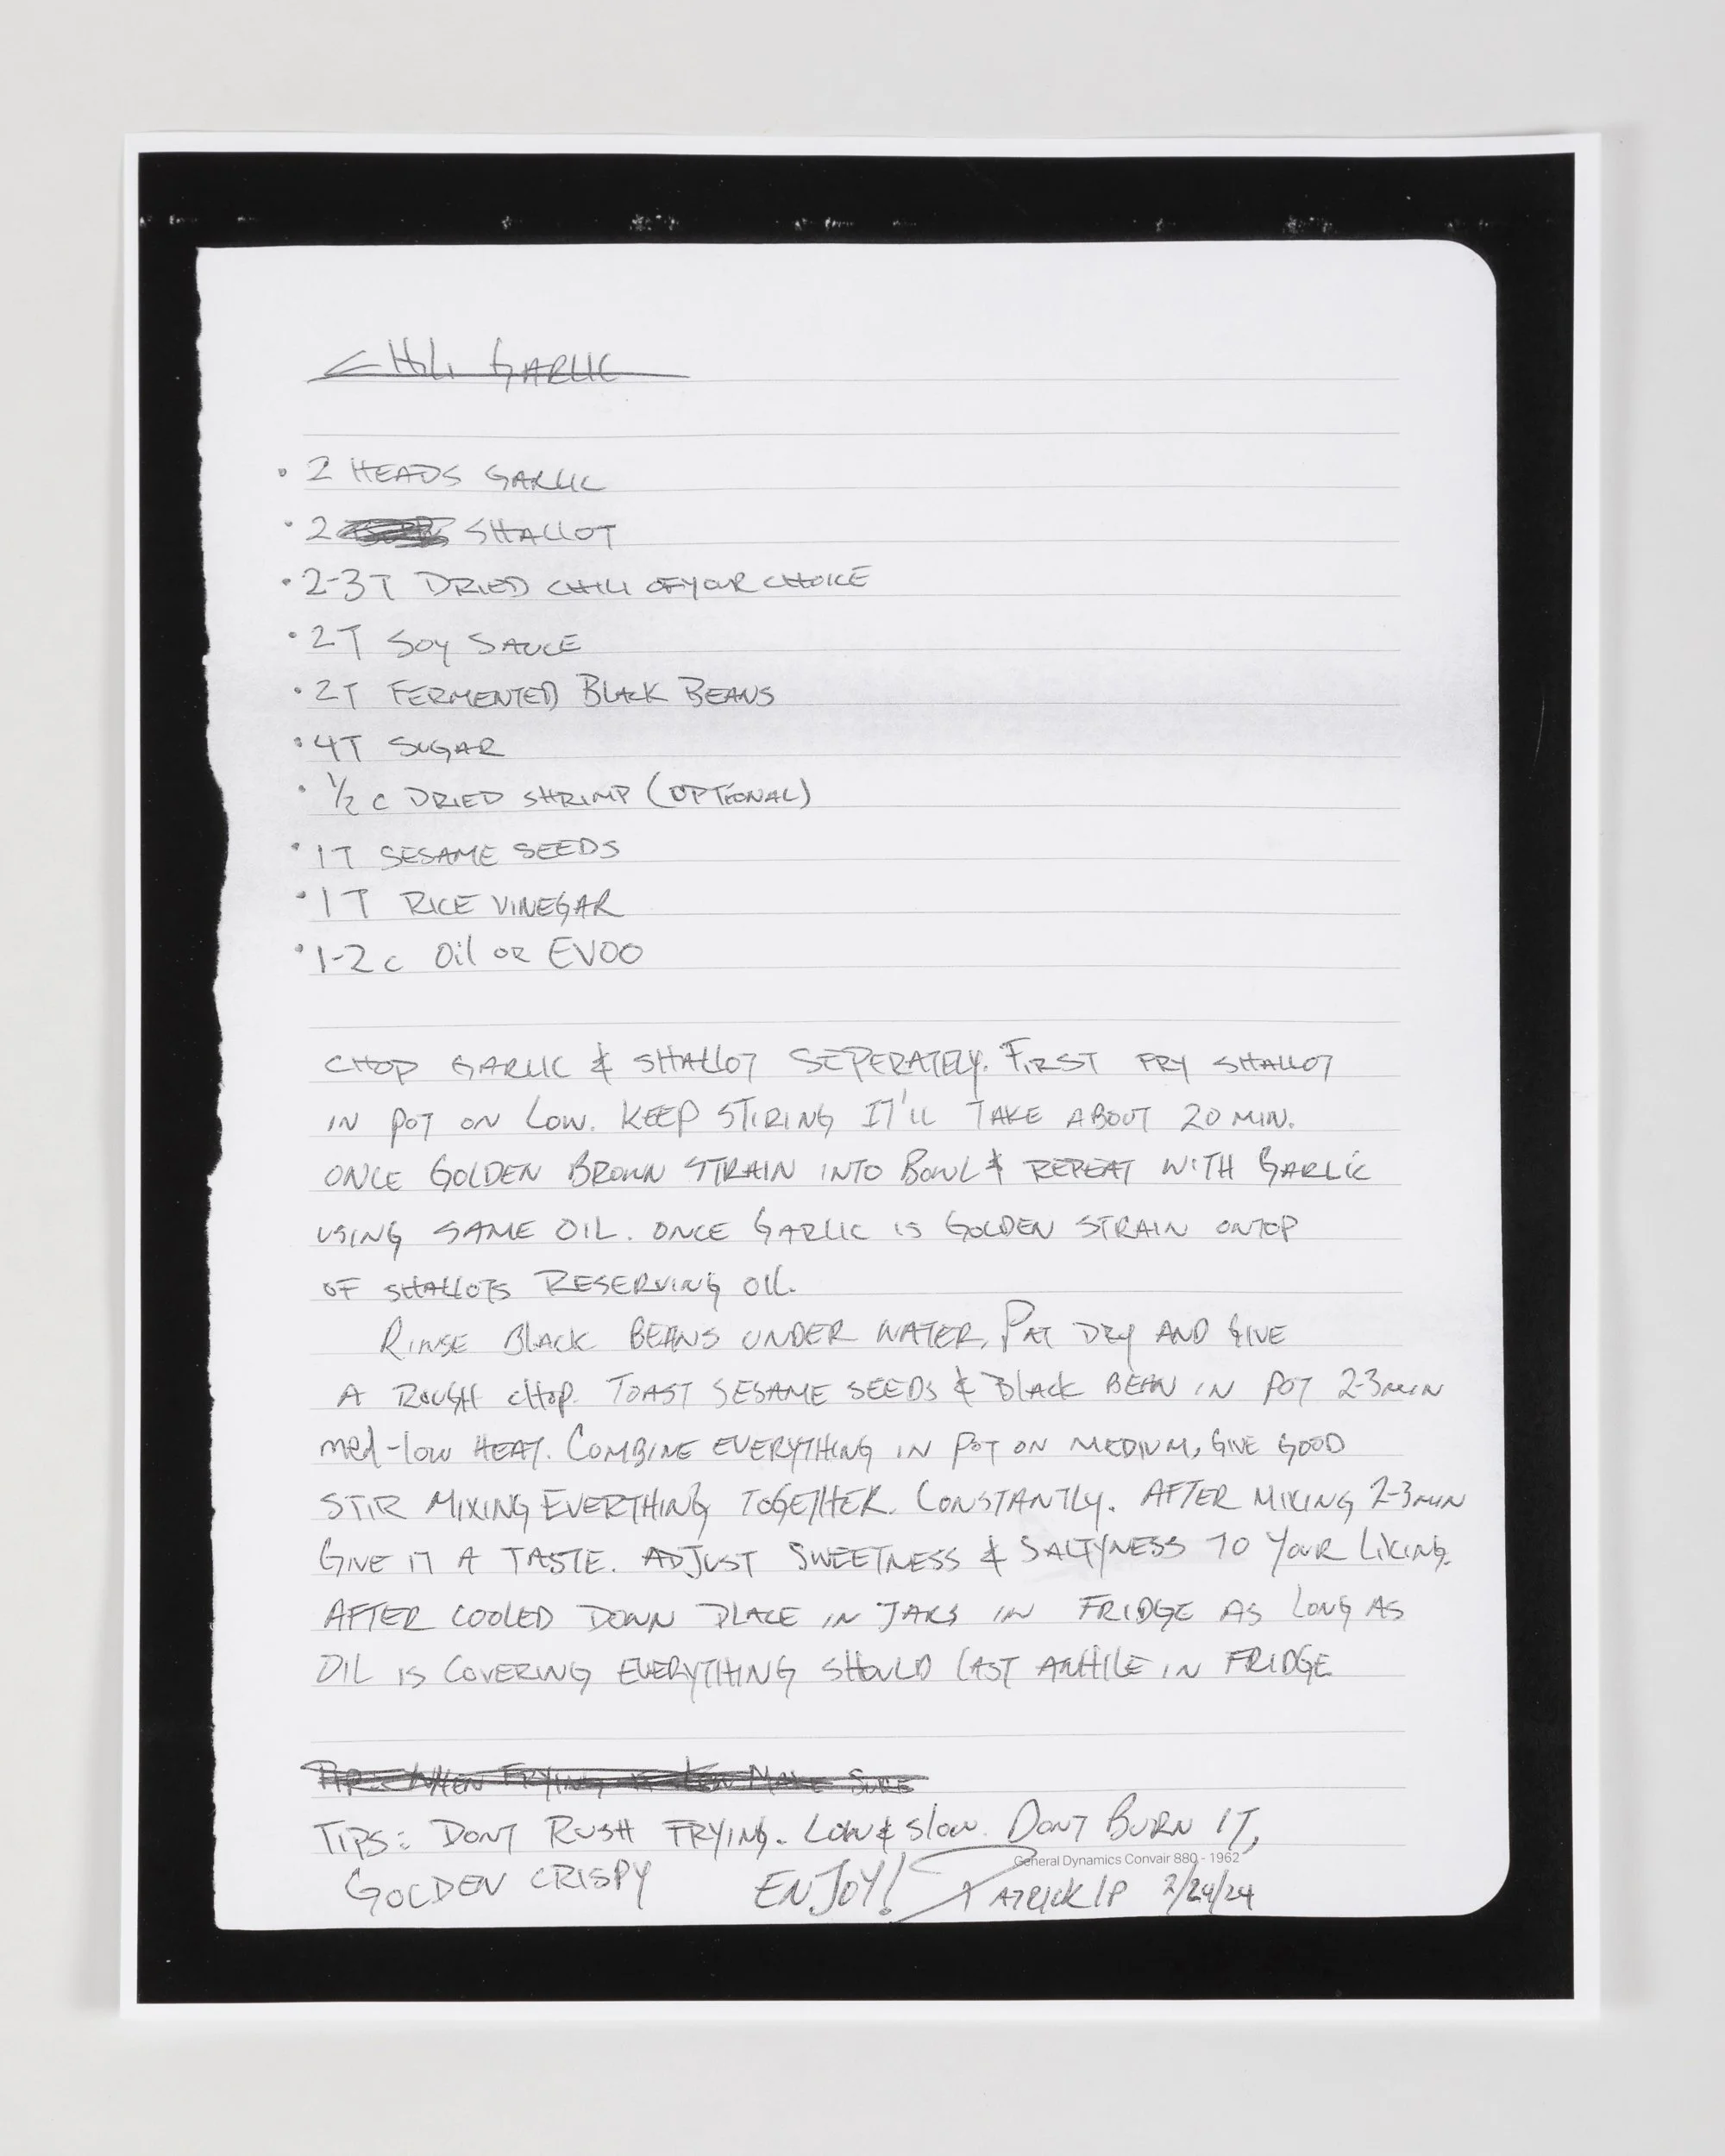 CHILI GARLIC
• 2 HEADS GARLIC
• 2 SHALLOT
• 2-3T DRIED CHILI OF YOUR CHOICE
• 2T SOY SAUCE
• 2T FERMENTED BLACK BEANS
• 4T SUGAR
• 1/2 C DRIED SHRIMP (OPTIONAL)
• 1T SESAME SEEDS
• 1T RICE VINEGAR
• 1-2 C Oil OR EVOO
CHOP GARLIC & SHALLOT SEPERATELY. FIRST FRY SHALLOT
IN POT ON LOW. KEEP STIRING IT'LL TAKE ABOUT 20 MIN.
ONCE GOLDEN BROWN STRAIN INTO BOWL & REPEAT WITH GARLIC
USING SAME OIL. ONCE GARLIC IS GOLDEN STRAIN ONTOP
OF SHALLOTS RESERVING OIL.
RINSE BLACK BEANS UNDER WATER, PAT DRY AND GIVE
A ROUGH CHOP. TOAST SESAME SEEDS & BLACK BEAN IN POT 2-3MIN
med-low HEAT. COMBINE EVERYTHING IN POT ON MEDIUM, GIVE GOOD
STIR MIXING EVERTHING TOGETHER. CONSTANTLY. AFTER MIXING 2-3MIN
GIVE IT A TASTE. ADJUST SWEETNESS & SALTYNESS TO YOUR LIKING.
AFTER COOLED DOWN PLACE IN JARS IN FRIDGE AS LONG AS
OIL IS COVERING EVERYTHING SHOULD LAST AWHILE IN FRIDGE
TIP: WHEN FRYING MAKE SURE
TIPS: DONT RUSH FRYING. LOW & Slow. DONT BURN IT,
General Dynamics Convair 880 - 1962
GOLDEN CRISPY ENJOY! PATRICK IP 2/24/24